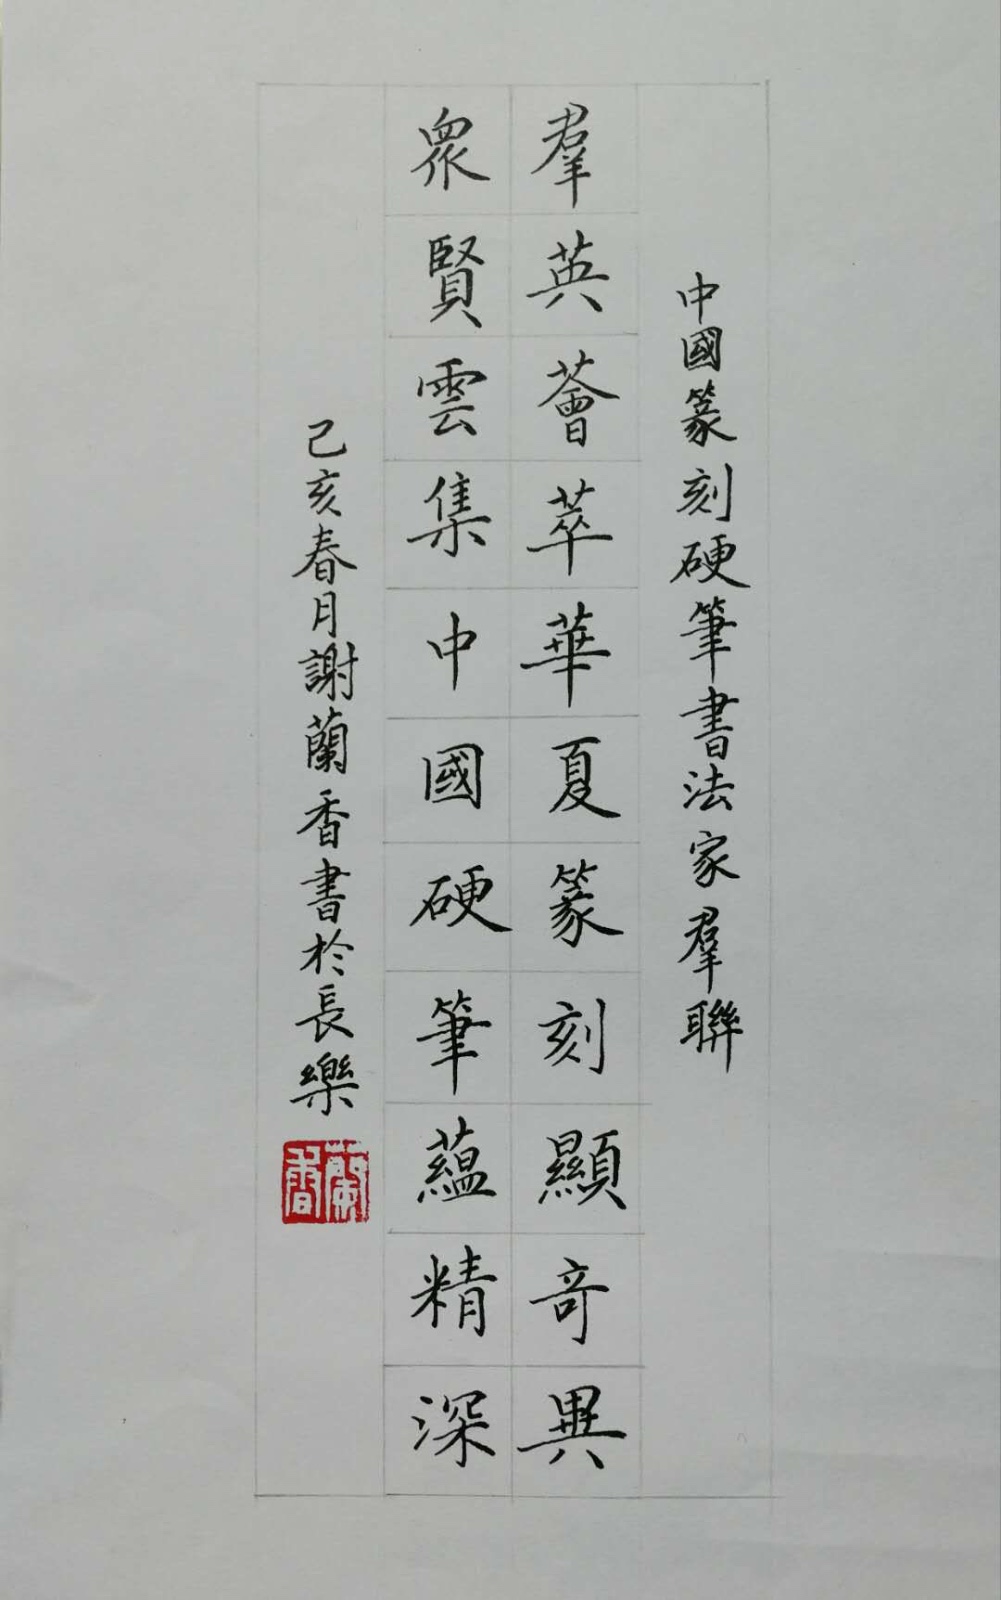 中國篆刻硬筆書法家羣聯
羣英薈萃華夏篆刻顯奇異
眾賢雲集中國硬筆蘊精深
己亥春月謝蘭香書於長樂
蘭香